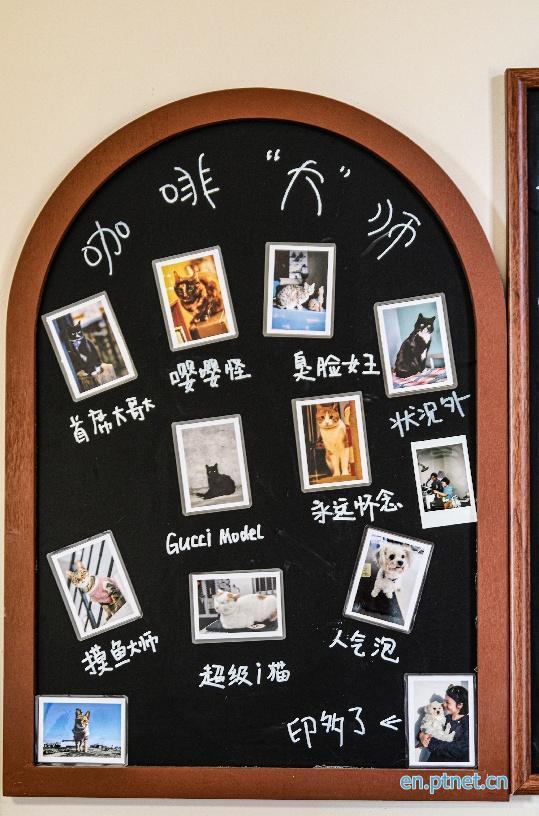 咖啡“大”师
嘤嘤怪
臭脸女王
首席大哥
状况外
永远怀念
Gucci Model
摸鱼大师
人气泡
超级i猫
印多了←
en.ptnet.cn